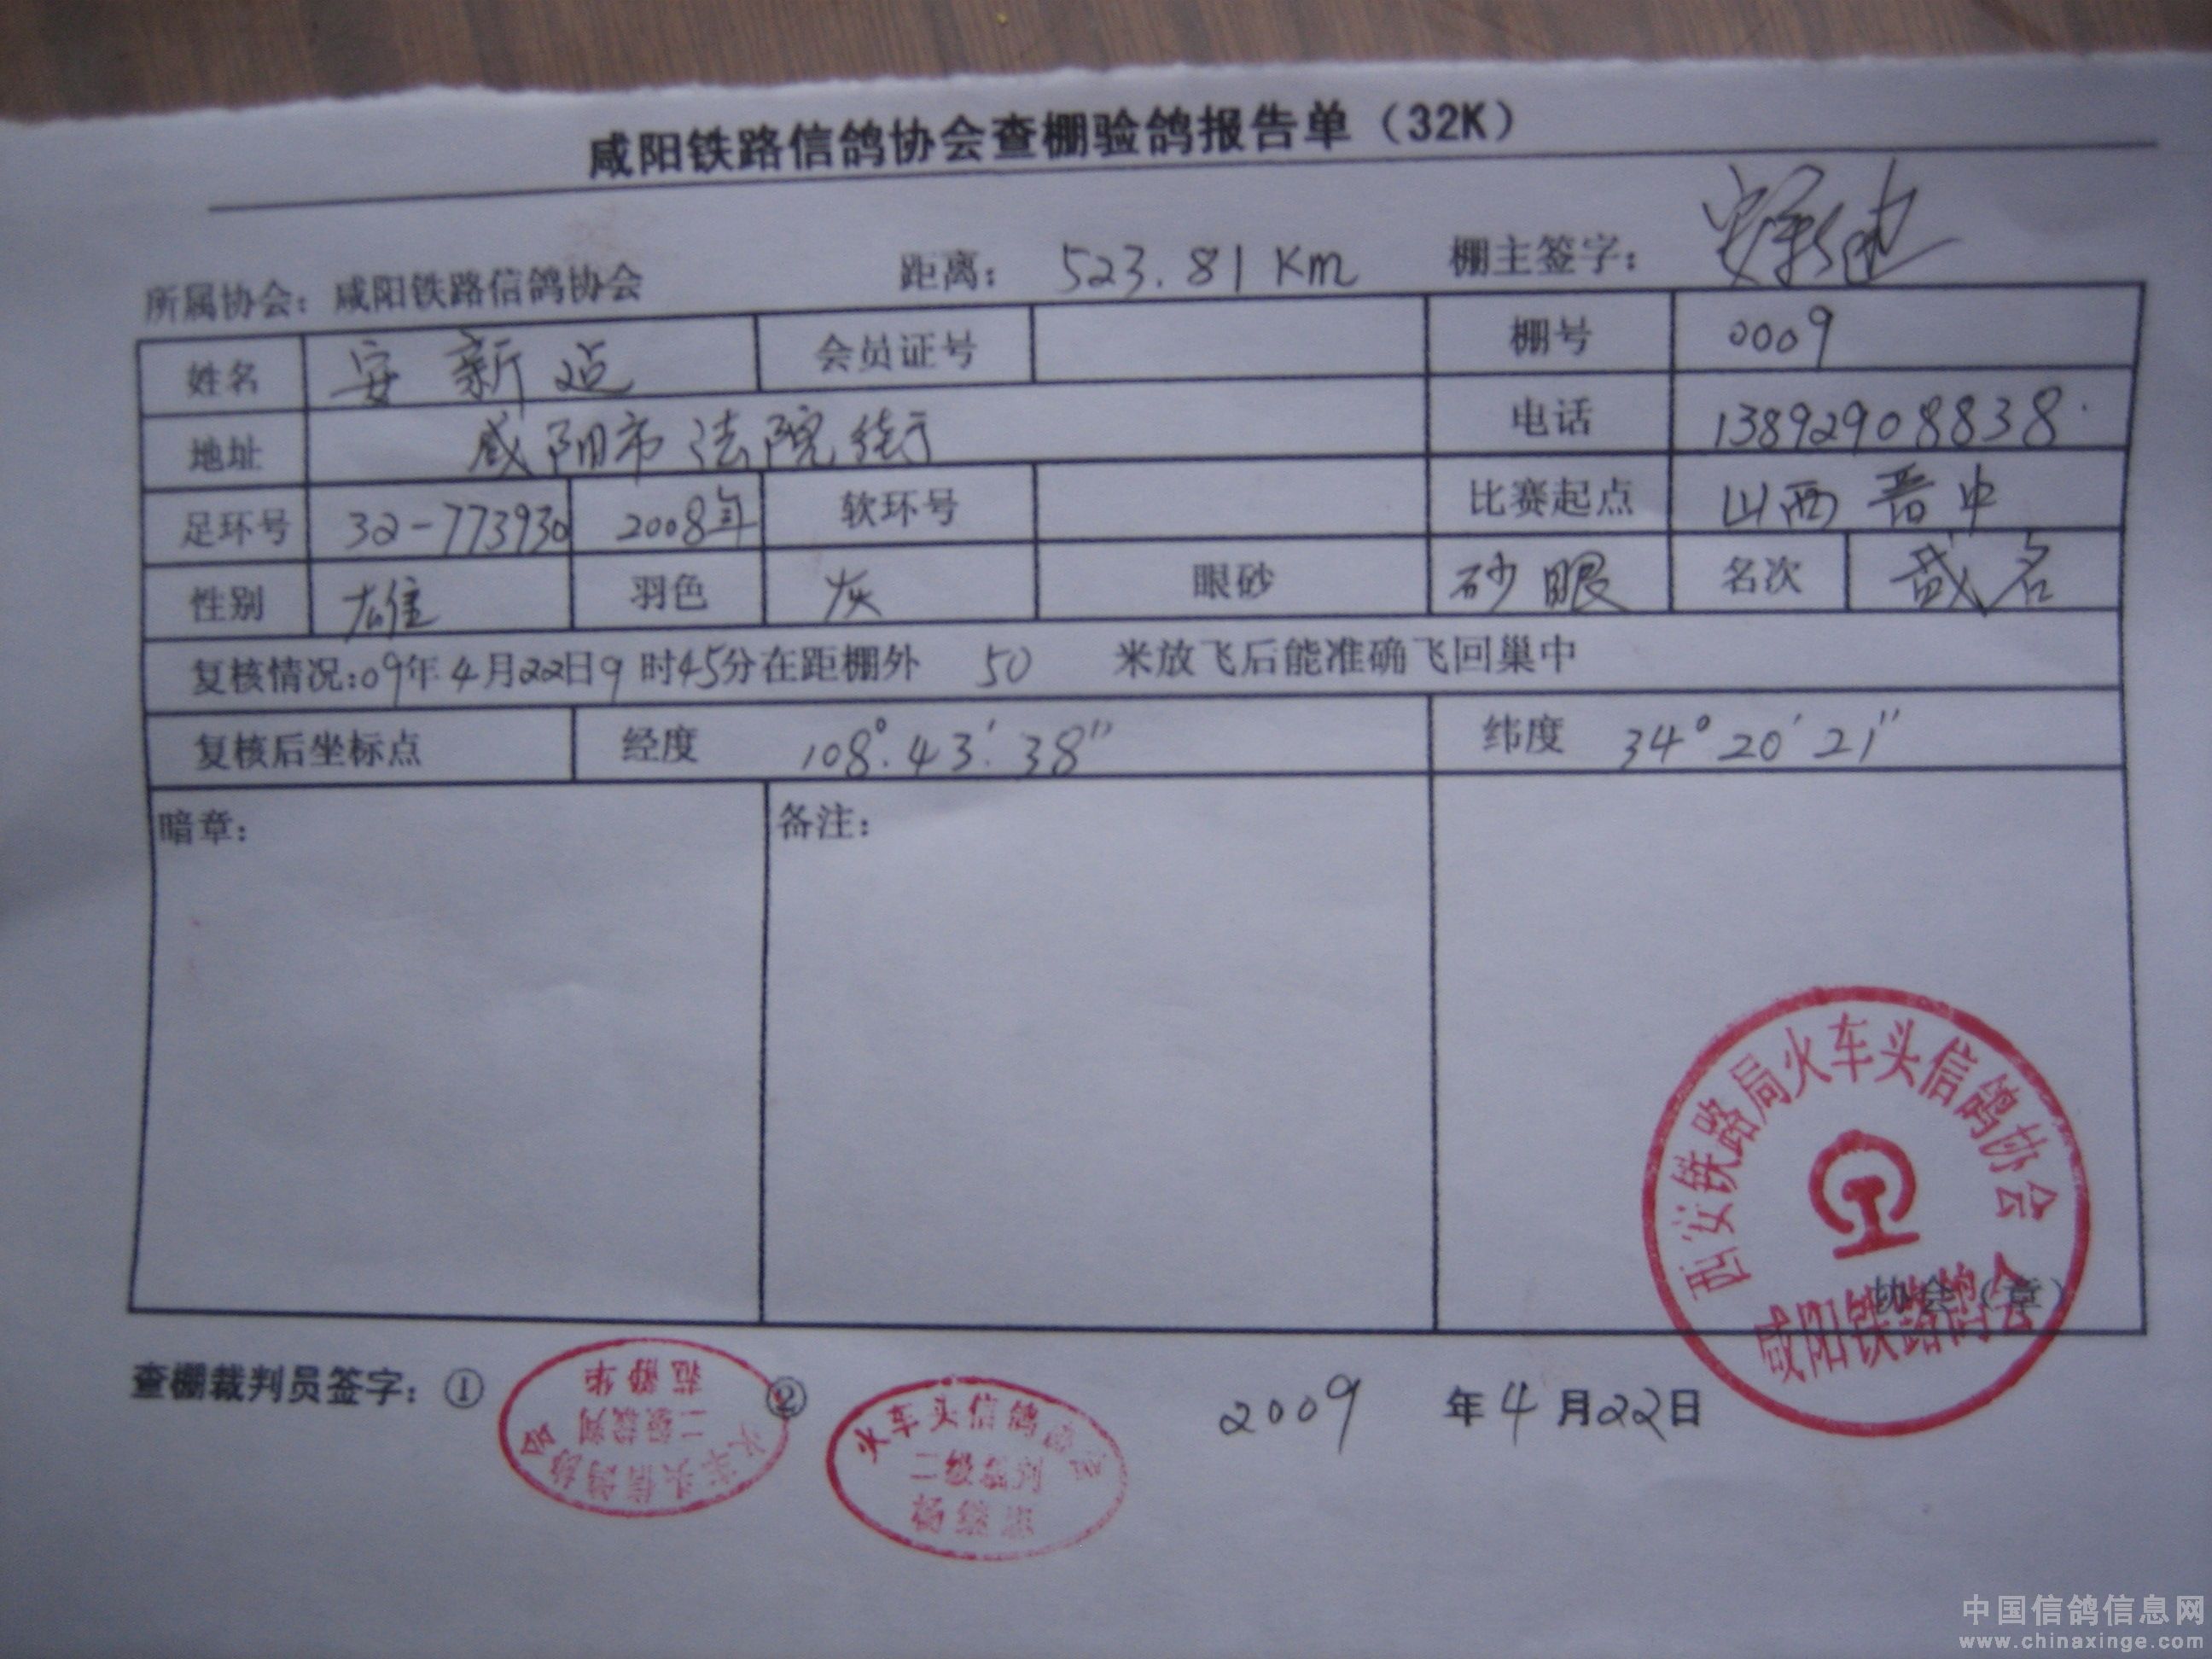 咸阳铁路信鸽协会查棚验鸽报告单（32K）
所属协会：咸阳铁路信鸽协会 距离：523.81 Km 棚主签字：
姓名 安新 会员证号 棚号 0009
地址 咸阳市法院街 电话 13892908838
足环号 32-773930 2008年 软环号 比赛起点 山西晋中
性别 雄 羽色 灰 眼砂 砂眼 名次 名
复核情况：09年4月22日9时45分在距棚外 50 米放飞后能准确飞回巢中
复核后坐标点 经度 108°.43′.38″ 纬度 34°20′21″
暗章： 备注：
西安铁路局火车头信鸽协会
协会（章）
咸阳铁路鸽会
查棚裁判员签字：① ② 2009年4月22日
范静华
二级裁判
火车头信鸽协会
火车头信鸽协会
二级裁判
杨
中国信鸽信息网
www.chinaxinge.com